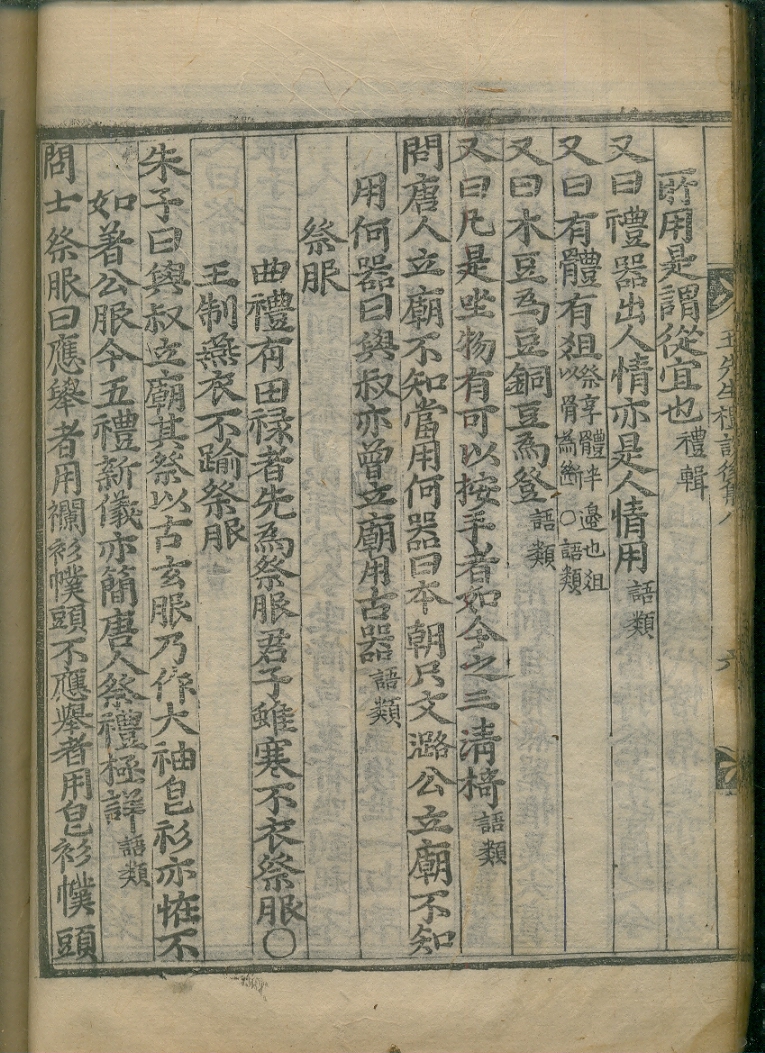 五先生禮說後集八
六
所用是謂從宜也禮輯
又曰禮器出人情亦是人情用語類
又曰有體有俎祭享體半邊也俎以骨為斷○語類
又曰木豆為豆銅豆為登語類
又曰凡是坐物有可以按手者如今之三清椅語類
問唐人立廟不知當用何器曰本朝只文潞公立廟不知
用何器曰與叔亦曾立廟用古器語類
祭服
曲禮有田祿者先為祭服君子雖寒不衣祭服○
王制燕衣不踰祭服
朱子曰與叔立廟其祭以古玄服乃作大袖皂衫亦恠不
如著公服今五禮新儀亦簡唐人祭禮極詳語類
問士祭服曰應舉者用襴衫幞頭不應舉者用皂衫幞頭